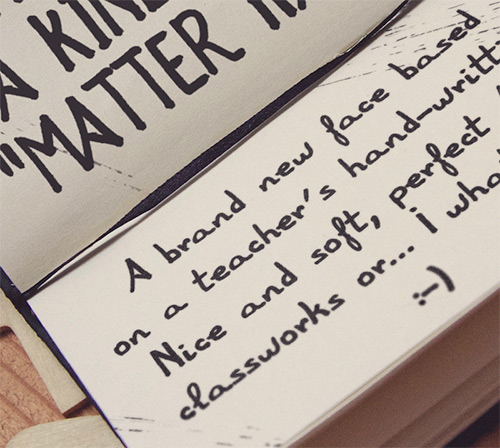 A KIN
"MATTER
A brand new face based
on a teacher's hand-writt
Nice and soft, perfect
classworks or... i
:-)